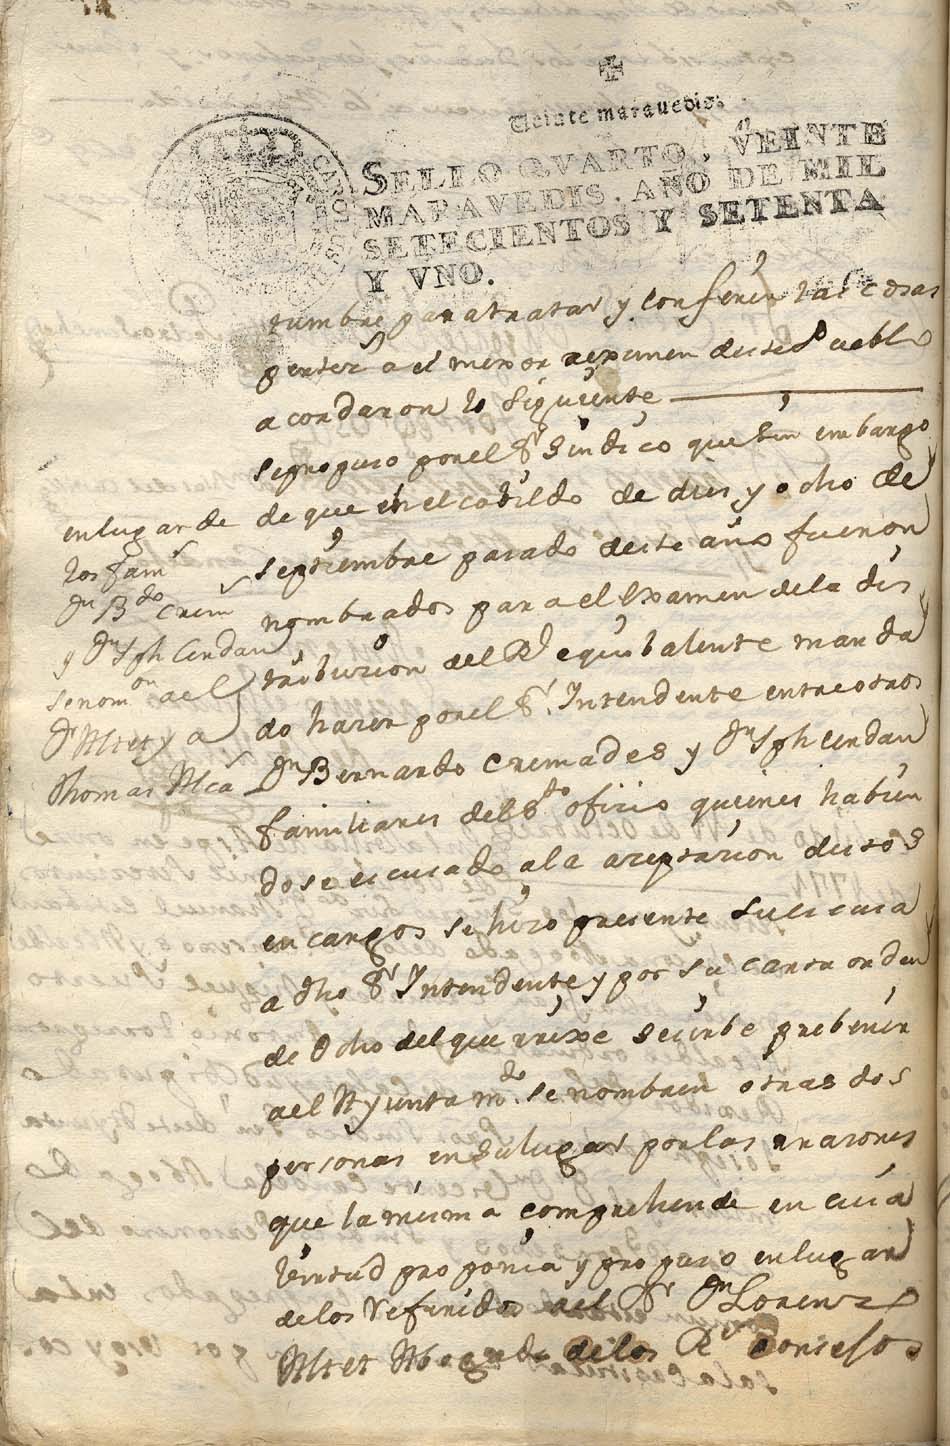 Veinte maravedis.
SELLO QVARTO, VEINTE
MARAVEDIS, AÑO DE MIL
SETECIENTOS Y SETENTA
Y VNO.
CAROLUS
tumbre para tratar y conferir las cosas
pertecs a el mexor reximen deste Pueblo
acordaron lo siguiente
se propuso por el Sr Sindico que sin embargo
de que en el cabildo de dies y ocho de
septiembre pasado deste año fueron
nombrados para el Examen de la dis
tribuzion del Rl equibalente manda
do hazer por el Sr Intendente entre otros
Dn Bernardo Cremades y Dn Jph Cerdan
familiares del Sto ofizio quienes habien
dose escusado a la azeptazion destos
encargos se hizo presente su escusa
a dho Sr Intendente y por su carta orden
de Ocho del que rrixe se sirbe prebenir
a el Ayuntamto se nombren otras dos
personas en su lugar por las rrazones
que la misma comprehende en cuia
birtud proponia y propuso en lugar
de los referidos a el Sr Dn Lorenzo
Mtet Abogado de los Rs Consejos
en lugar de
los fam
Dn Bdo Crem
y Dn Jph Cerdan
se nomon a el
Dr Mtet y a
Thomas Mca